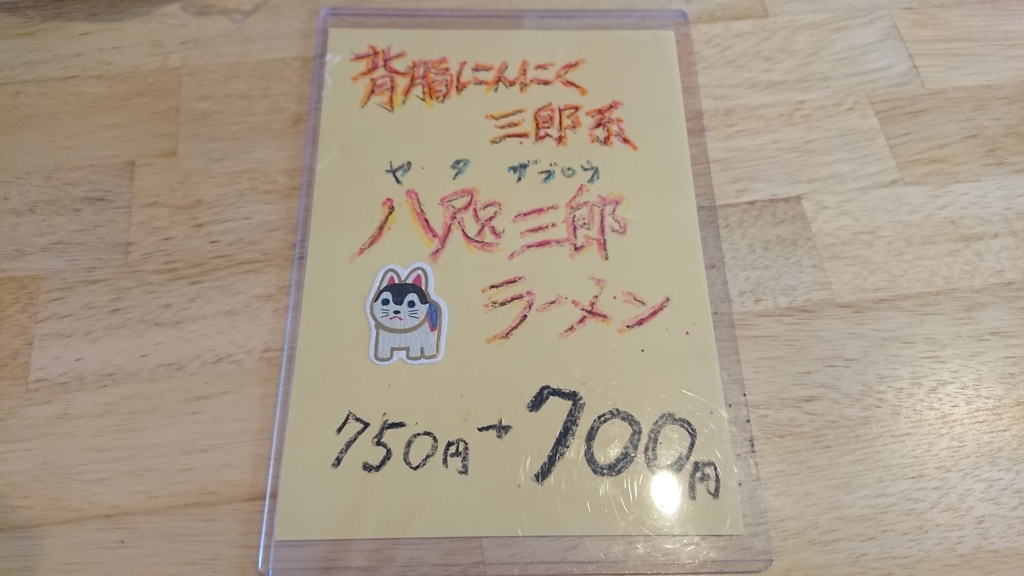 背脂にんにく
三郎系
ヤ タ ザブロウ
八咫三郎
ラーメン
750円→700円